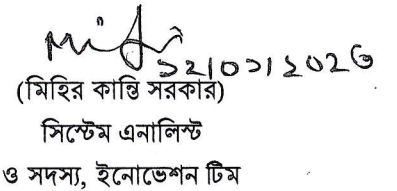 ১২/০১/২০২৬
(মিহির কান্তি সরকার)
সিস্টেম এনালিস্ট
ও সদস্য, ইনোভেশন টিম